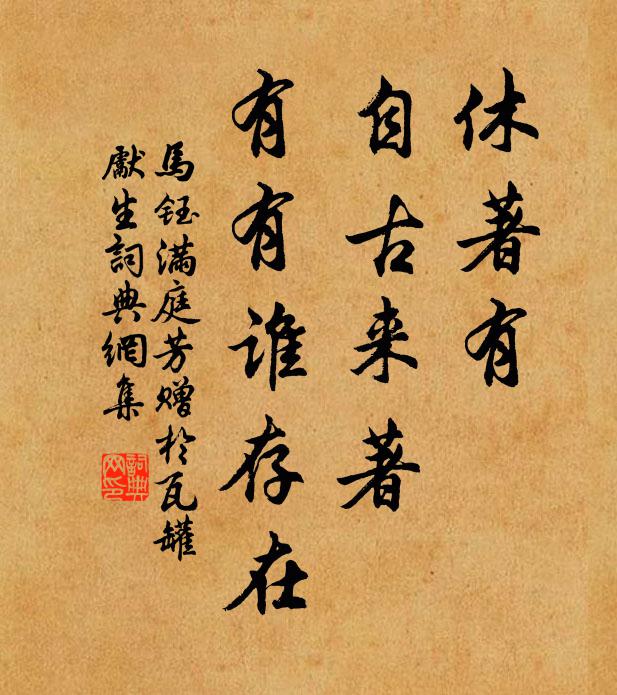 休著有
自古来著
有有谁存在
馬鈺满庭芳赠於瓦罐
獻生詞典網集
詞典網印